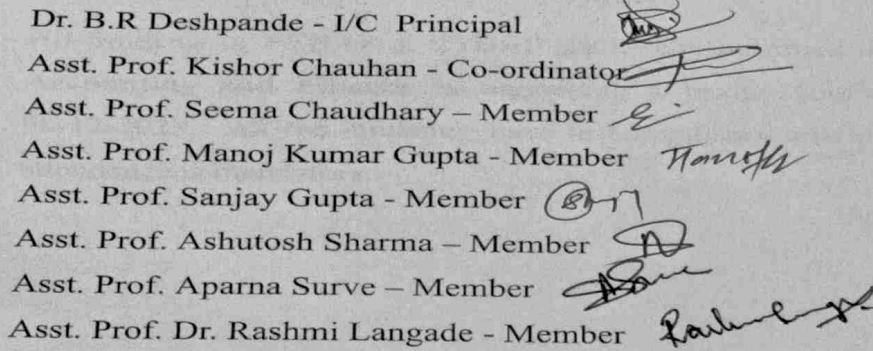 Dr. B.R Deshpande - I/C Principal
Asst. Prof. Kishor Chauhan - Co-ordinator
Asst. Prof. Seema Chaudhary – Member
Asst. Prof. Manoj Kumar Gupta - Member
Asst. Prof. Sanjay Gupta - Member
Asst. Prof. Ashutosh Sharma – Member
Asst. Prof. Aparna Surve – Member
Asst. Prof. Dr. Rashmi Langade - Member